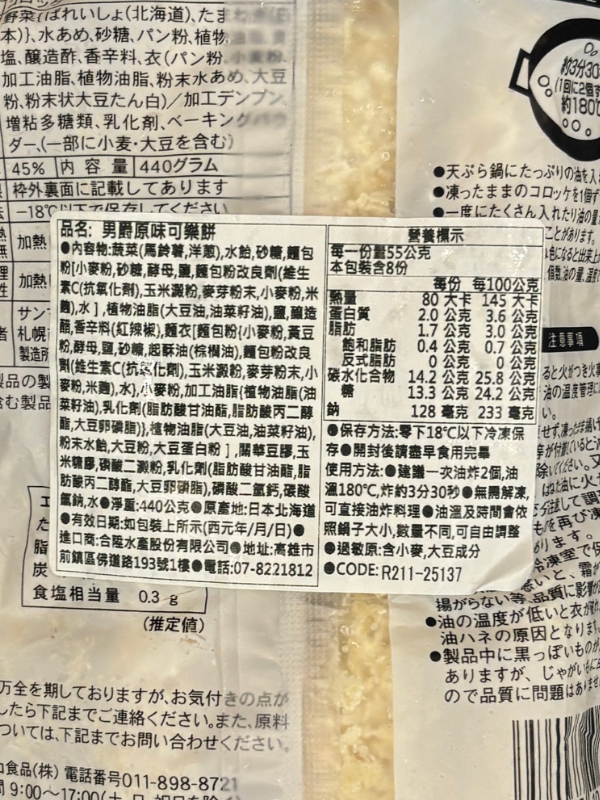 野菜(ばれいしょ(北海道)、たま
本)}、水あめ、砂糖、パン粉、植物
塩、醸造酢、香辛料、衣(パン粉、小麦粉、
加工油脂、植物油脂、粉末水あめ、大豆
粉、粉末状大豆たん白)/加工デンプン、
増粘多糖類、乳化剤、ベーキングパウ
ダー、(一部に小麦・大豆を含む)
45% 内容量 440グラム
枠外裏面に記載してあります
-18℃以下で保存してください
加熱
加熱
サン
札幌
製造所
製品の製
含む製品
品名: 男爵原味可樂餅
●內容物:蔬菜(馬鈴薯,洋蔥),水飴,砂糖,麵包
粉[小麥粉,砂糖,酵母,鹽,麵包粉改良劑(維生
素C(抗氧化劑),玉米澱粉,麥芽粉末,小麥粉,米
麴),水],植物油脂(大豆油,油菜籽油),鹽,釀造
醋,香辛料(紅辣椒),麵衣[麵包粉{小麥粉,黃豆
粉,酵母,鹽,砂糖,起酥油(棕櫚油),麵包粉改良
劑(維生素C(抗氧化劑),玉米澱粉,麥芽粉末,小
麥粉,米麴),水},小麥粉,加工油脂{植物油脂(油
菜籽油),乳化劑(脂肪酸甘油酯,脂肪酸丙二醇
酯,大豆卵磷脂)},植物油脂(大豆油,油菜籽油),
粉末水飴,大豆粉,大豆蛋白粉],關華豆膠,玉
米糖膠,磷酸二澱粉,乳化劑(脂肪酸甘油酯,脂
肪酸丙二醇酯,大豆卵磷脂),磷酸二氫鈣,碳酸
氫鈉,水●淨重:440公克●原產地:日本北海道
●有效日期:如包裝上所示(西元年/月/日)●
進口商:合隆水產股份有限公司●地址:高雄市
前鎮區佛道路193號1樓●電話:07-8221812
營養標示
每一份量55公克
本包裝含8份
每份 每100公克
熱量 80 大卡 145 大卡
蛋白質 2.0 公克 3.6 公克
脂肪 1.7 公克 3.0 公克
飽和脂肪 0.4 公克 0.7 公克
反式脂肪 0 公克 0 公克
碳水化合物 14.2 公克 25.8 公克
糖 13.3 公克 24.2 公克
鈉 128 毫克 233 毫克
●保存方法:零下18℃以下冷凍保
存●開封後請盡早食用完畢
使用方法:●建議一次油炸2個,油
溫180℃,炸約3分30秒●無需解凍,
可直接油炸料理●油溫及時間會依
照鍋子大小,數量不同,可自由調整
●過敏原:含小麥,大豆成分
●CODE: R211-25137
食塩相当量 0.3 g
(推定値)
万全を期しておりますが、お気付きの点が
したら下記までご連絡ください。また、原料
ついては、下記までお問い合わせください。
食品(株) 電話番号011-898-8721
9:00~17:00
約3分30
(1回に2個
約180℃
●天ぷら鍋にたっぷりの油を入
●凍ったままのコロッケを1個ず
●一度にたくさん入れたり油の量
ことがあります。
注意事項
揚がらない等、品質に影響
●油の温度が低いと衣が
油ハネの原因となります
●製品中に黒っぽいものが
ありますが、じゃがいも
ので品質に問題はありませ